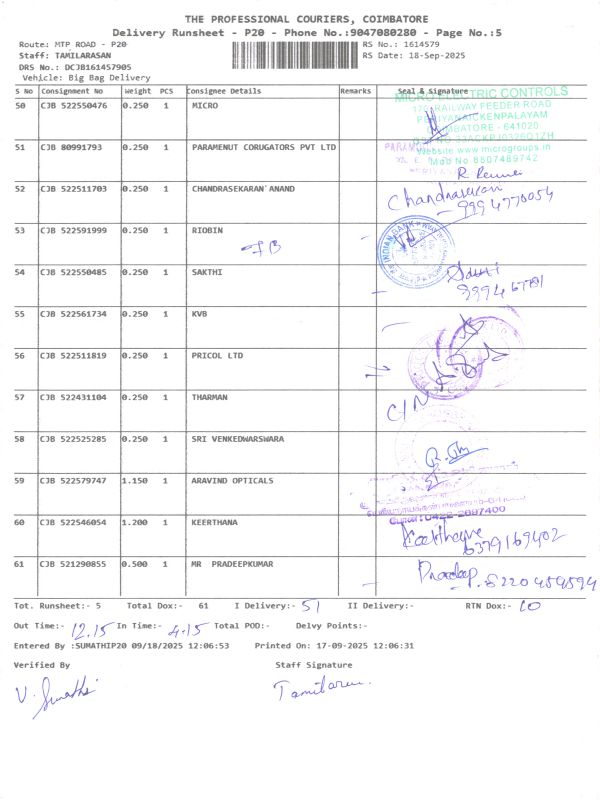 THE PROFESSIONAL COURIERS, COIMBATORE
Delivery Runsheet - P20 - Phone No.:9047080280 - Page No.:5
Route: MTP ROAD - P20
RS No.: 1614579
Staff: TAMILARASAN
RS Date: 18-Sep-2025
DRS No.: DCJB161457905
Vehicle: Big Bag Delivery
S No Consignment No Weight PCS Consignee Details Remarks Seal & Signature
50 CJB 522550476 0.250 1 MICRO
MICRO ELECTRIC CONTROLS
RAILWAY FEEDER ROAD
PERIYANAICKENPALAYAM
COIMBATORE - 641020
51 CJB 80991793 0.250 1 PARAMENUT CORUGATORS PVT LTD
Website www.microgroups.in
Mob No 8807489742
52 CJB 522511703 0.250 1 CHANDRASEKARAN'ANAND
Chandrasekaran
9994770054
53 CJB 522591999 0.250 1 RIOBIN
INDIAN BANK
54 CJB 522550485 0.250 1 SAKTHI
55 CJB 522561734 0.250 1 KVB
56 CJB 522511819 0.250 1 PRICOL LTD
57 CJB 522431104 0.250 1 THARMAN
C/N
58 CJB 522525285 0.250 1 SRI VENKEDWARSWARA
59 CJB 522579747 1.150 1 ARAVIND OPTICALS
0422-2697400
60 CJB 522546054 1.200 1 KEERTHANA
Keerthana
6379169402
61 CJB 521290855 0.500 1 MR PRADEEPKUMAR
Pradeep. 8220459594
Tot. Runsheet:- 5 Total Dox:- 61 I Delivery:- 51 II Delivery:- RTN Dox:- 10
Out Time:- 12.15 In Time:- 4.15 Total POD:- Delvy Points:-
Entered By :SUMATHIP20 09/18/2025 12:06:53 Printed On: 17-09-2025 12:06:31
Verified By Staff Signature
V. Sumathi Tamilarasan